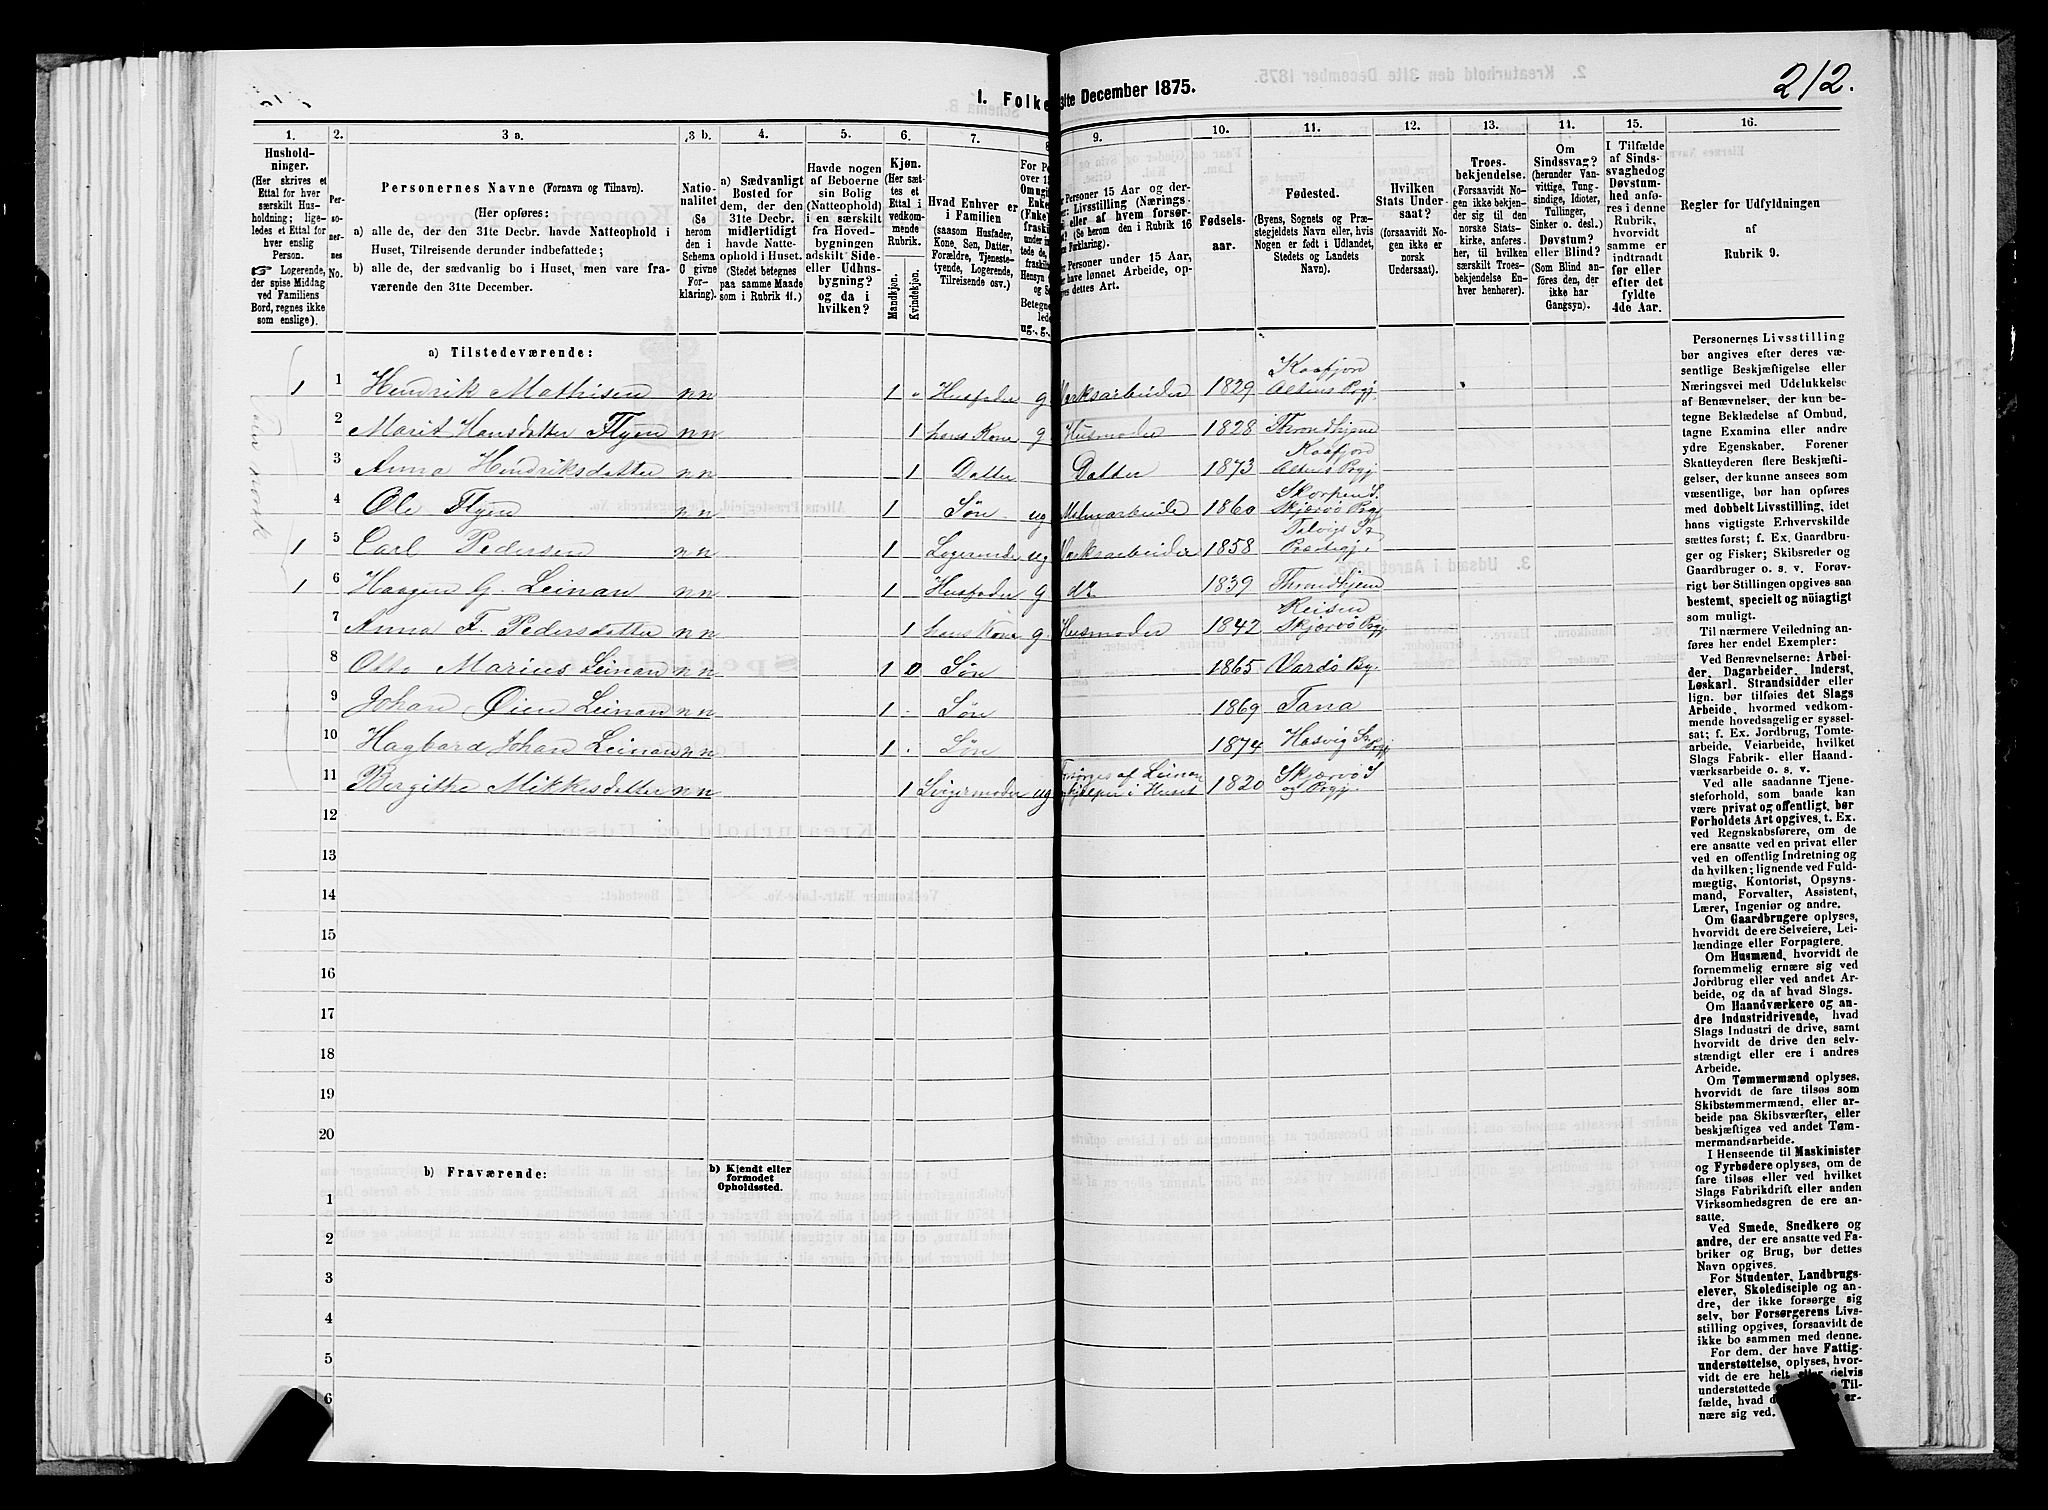 212.
I. Folke
31te December 1875.
1. 2. 3 a. 3 b. 4. 5. 6. 7. 8 9. 10. 11. 12. 13. 14. 15. 16.
Hushold-
ninger.
(Her skrives et
Ettal for hver
særskilt Hus-
holdning; lige-
ledes et Ettal for
hver enslig
Person.
☞ Logerende,
der spise Middag
ved Familiens
Bord, regnes ikke
som enslige).
Per-
so-
ner-
nes
No.
Personernes Navne (Fornavn og Tilnavn).
(Her opføres:
a) alle de, der den 31te Decbr. havde Natteophold i
Huset, Tilreisende derunder indbefattede;
b) alle de, der sædvanlig bo i Huset, men vare fra-
værende den 31te December.
Natio-
nalitet
(Se
herom
den i
Schema
C givne
For-
klaring).
a) Sædvanligt
Bosted for
dem, der den
31te Decbr.
midlertidigt
havde Natte-
ophold i Huset.
(Stedet betegnes
paa samme Maade
som i Rubrik 11.)
Havde nogen
af Beboerne
sin Bolig
(Natteophold)
i en særskilt
fra Hoved-
bygningen
adskilt Side-
eller Udhus-
bygning?
og da i
hvilken?
Kjøn.
(Her sæt-
tes et
Ettal i
vedkom-
mende
Rubrik.
Mandkjøn.
Kvindekjøn.
Hvad Enhver er
i Familien
(saasom Husfader,
Kone, Søn, Datter,
Forældre, Tjeneste-
tyende, Logerende,
Tilreisende osv.)
For Pe
over 15
Om ugift
Enke
(Enke)
fraskilt
ug., g.,
Personer 15 Aar og der-
Livsstilling (Nærings
eller af hvem forsør-
(Se herom den i Rubrik 16
Forklaring).
Personer under 15 Aar,
have lønnet Arbeide, op-
gives dettes Art.
Fødsels-
aar.
Fødested.
(Byens, Sognets og Præ-
stegjeldets Navn eller, hvis
Nogen er født i Udlandet,
Stedets og Landets
Navn).
Hvilken
Stats Under-
saat?
(forsaavidt No-
gen ikke er
norsk
Undersaat).
Troes-
bekjendelse.
(Forsaavidt No-
gen ikke bekjen-
der sig til den
norske Stats-
kirke, anføres
her, til hvilken
særskilt Troes-
bekjendelse En-
hver henhører).
Om
Sindssvag?
(herunder Van-
vittige, Tung-
sindige, Idioter,
Tullinger,
Sinker o. desl.)
Døvstum?
eller Blind?
(Som Blind an-
føres den, der
ikke har
Gangsyn).
I Tilfælde
af Sinds-
svaghed og
Døvstum-
hed anfø-
res i denne
Rubrik,
hvorvidt
samme er
indtraadt
før eller
efter det
fyldte
4de Aar.
Regler for Udfyldningen
af
Rubrik 9.
a) Tilstedeværende:
1 1 Hendrik Mathisen nn 1 Husfader g. Værksarbeider 1829 Kaafjord Altens Prgj.
2 Marit Hansdatter Flyen nn 1 hans Kone g. Husmoder 1828 Throndhjem
3 Anna Hendriksdatter nn 1 Datter Datter 1873 Kaafjord Altens Prgj.
4 Ole Flyen nn 1 Søn ug Malmarbeider 1860 Skorpen S. Skjervø Prgj
1 5 Carl Pedersen nn 1 Logerende ug Værksarbeider 1858 Talvigs S. Præstegj.
1 6 Haagen G. Leinan nn 1 Husfader g do 1839 Throndhjem
7 Anna F. Pedersdatter nn 1 hans Kone g. Husmoder 1842 Reisen Skjervø Prgj
8 Otto Marius Leinan nn 1 0 Søn 1865 Vardø By.
9 Johan Øien Leinan nn 1 Søn 1869 Tana
10 Hagbard Johan Leinan nn 1 Søn 1874 Hasvig S. Prgj
11 Bergitte Mikkelsdatter nn 1 Svigermoder ug Forsørges af Leinan hjælper i Huset 1820 Skjervø S og Prgj.
12
13
14
15
16
17
18
19
20
b) Fraværende:
b) Kjendt eller
formodet
Opholdssted.
1
2
3
4
5
6
Personernes Livsstilling
bør angives efter deres væ-
sentlige Beskjæftigelse eller
Næringsvei med Udelukkelse
af Benævnelser, der kun be-
tegne Beklædelse af Ombud,
tagne Examina eller andre
ydre Egenskaber. Forener
Skatteyderen flere Beskjæfti-
gelser, der kunne ansees som
væsentlige, bør han opføres
med dobbelt Livsstilling, idet
hans vigtigste Erhvervskilde
sættes først; f. Ex. Gaardbru-
ger og Fisker; Skibsreder og
Gaardbruger o. s. v. Forøv-
rigt bør Stillingen opgives saa
bestemt, specielt og nöiagtigt
som muligt.
Til nærmere Veiledning an-
føres her endel Exempler:
Ved Benævnelserne: Arbei-
der, Dagarbeider, Inderst,
Løskarl, Strandsidder eller
lign. bør tilføies det Slags
Arbeide, hvormed vedkom-
mende hovedsagelig er syssel-
sat; f. Ex. Jordbrug, Tomte-
arbeide, Veiarbeide, hvilket
Slags Fabrik- eller Haand-
værksarbeide o. s. v.
Ved alle saadanne Tjene-
steforhold, som baade kan
være privat og offentligt, bør
Forholdets Art opgives, t. Ex.
ved Regnskabsførere, om de
ere ansatte ved en privat eller
ved en offentlig Indretning og
da hvilken; lignende ved Fuld-
mægtig, Kontorist, Opsyns-
mand, Forvalter, Assistent,
Lærer, Ingeniør og andre.
Om Gaardbrugere oplyses,
hvorvidt de ere Selveiere, Lei-
lændinge eller Forpagtere.
Om Husmænd, hvorvidt de
fornemmelig ernære sig ved
Jordbrug eller ved andet Ar-
beide, og da af hvad Slags.
Om Haandværkere og an-
dre Industridrivende, hvad
Slags Industri de drive, samt
hvorvidt de drive den selv-
stændigt eller ere i andres
Arbeide.
Om Tømmermænd oplyses,
hvorvidt de fare tilsøs som
Skibstømmermænd, eller ar-
beide paa Skibsværfter, eller
beskjæftiges ved andet Tøm-
mermandsarbeide.
I Henseende til Maskinister
og Fyrbødere oplyses, om de
fare tilsøs eller ved hvilket
Slags Fabrikdrift eller anden
Virksomhedsgren de ere an-
satte.
Ved Smede, Snedkere og
andre, der ere ansatte ved Fa-
briker og Brug, bør dettes
Navn opgives.
For Studenter, Landbrugs-
elever, Skoledisciple og an-
dre, der ikke forsørge sig
selv, bør Forsørgerens Livs-
stilling opgives, forsaavidt de
ikke bo sammen med denne.
For dem, der have Fattig-
understøttelse, oplyses, hvor-
vidt de ere helt eller delvis
understøttede
fælde, hvad
nære sig ved.